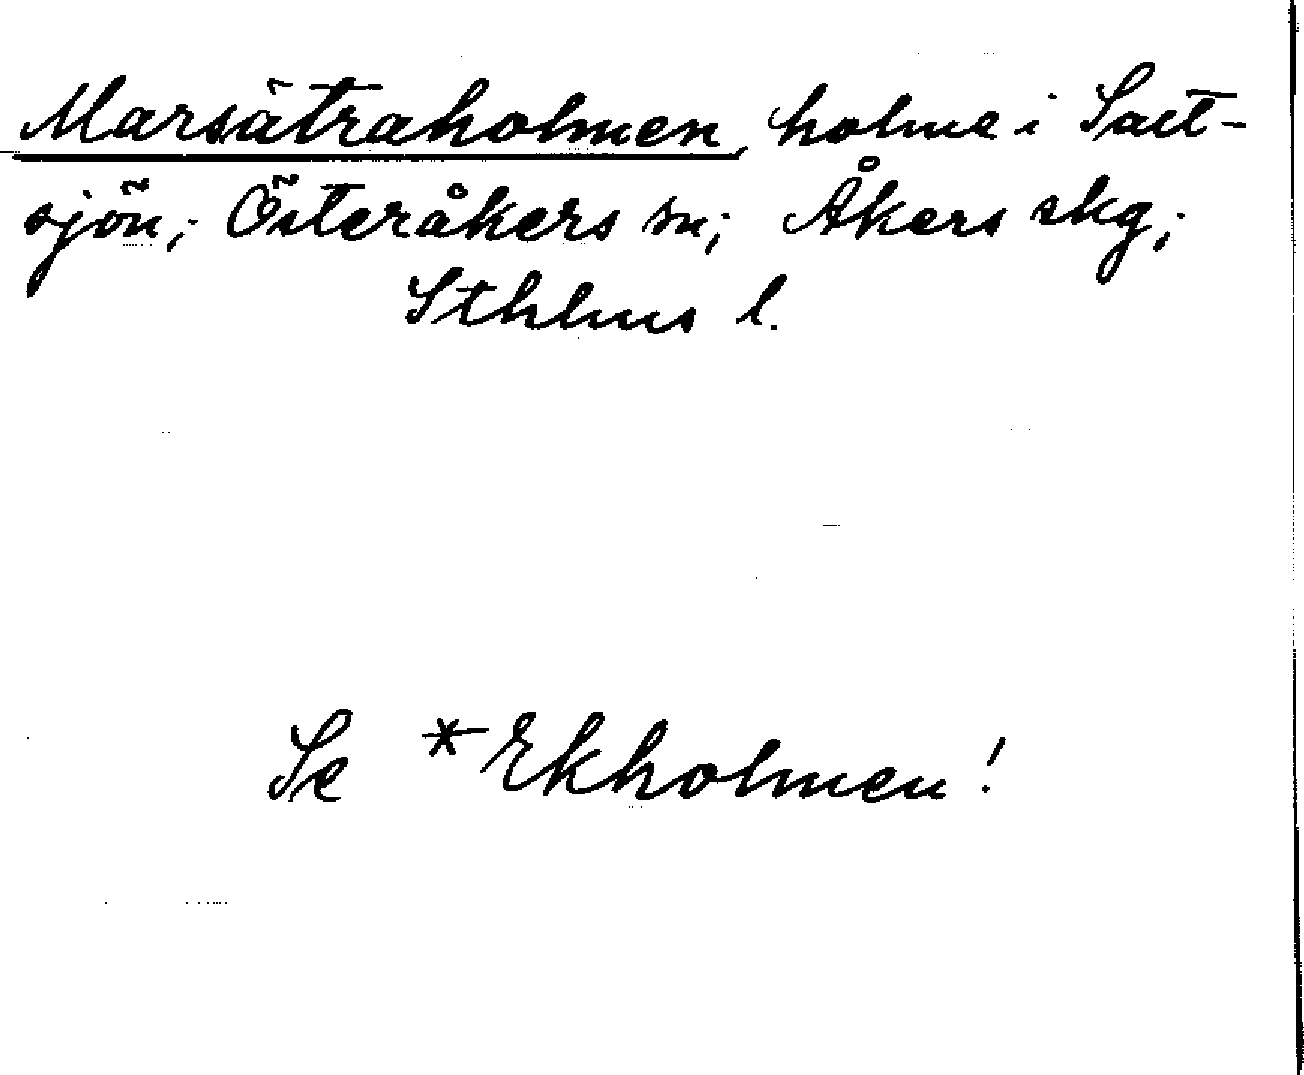 Marsätraholmen, holme i Salt-
sjön; Österåkers sn; Åkers skg;
Sthlms l.
Se *Ekholmen!